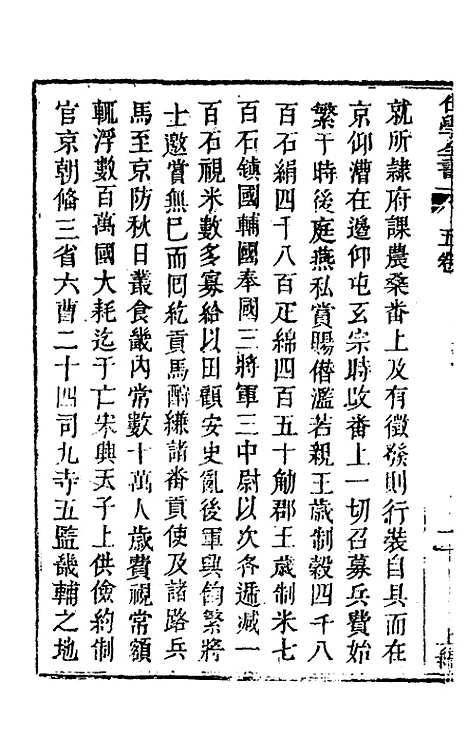 就所隸府課農桑番上及有徵發則行裝自具而在
京仰漕在邊仰屯玄宗時改番上一切召募兵費始
繁于時後庭燕私賞賜僭濫若親王歳制穀四千八
百石絹四千八百疋綿四百五十觔郡王歳制米七
百石鎮國輔國奉國三將軍三中尉以次各遞减一
百石視米數多寡給以田顧安史亂後軍興餉繁將
士邀賞無已而囘紇貢馬酧縑諸番貢使及諸路兵
馬至京防秋日叢食畿内常數十萬人歳費視常額
輒浮數百萬國大耗迄于亡宋興天子上供儉約制
官京朝脩三省六曹二十四司九寺五監畿輔之地
五卷